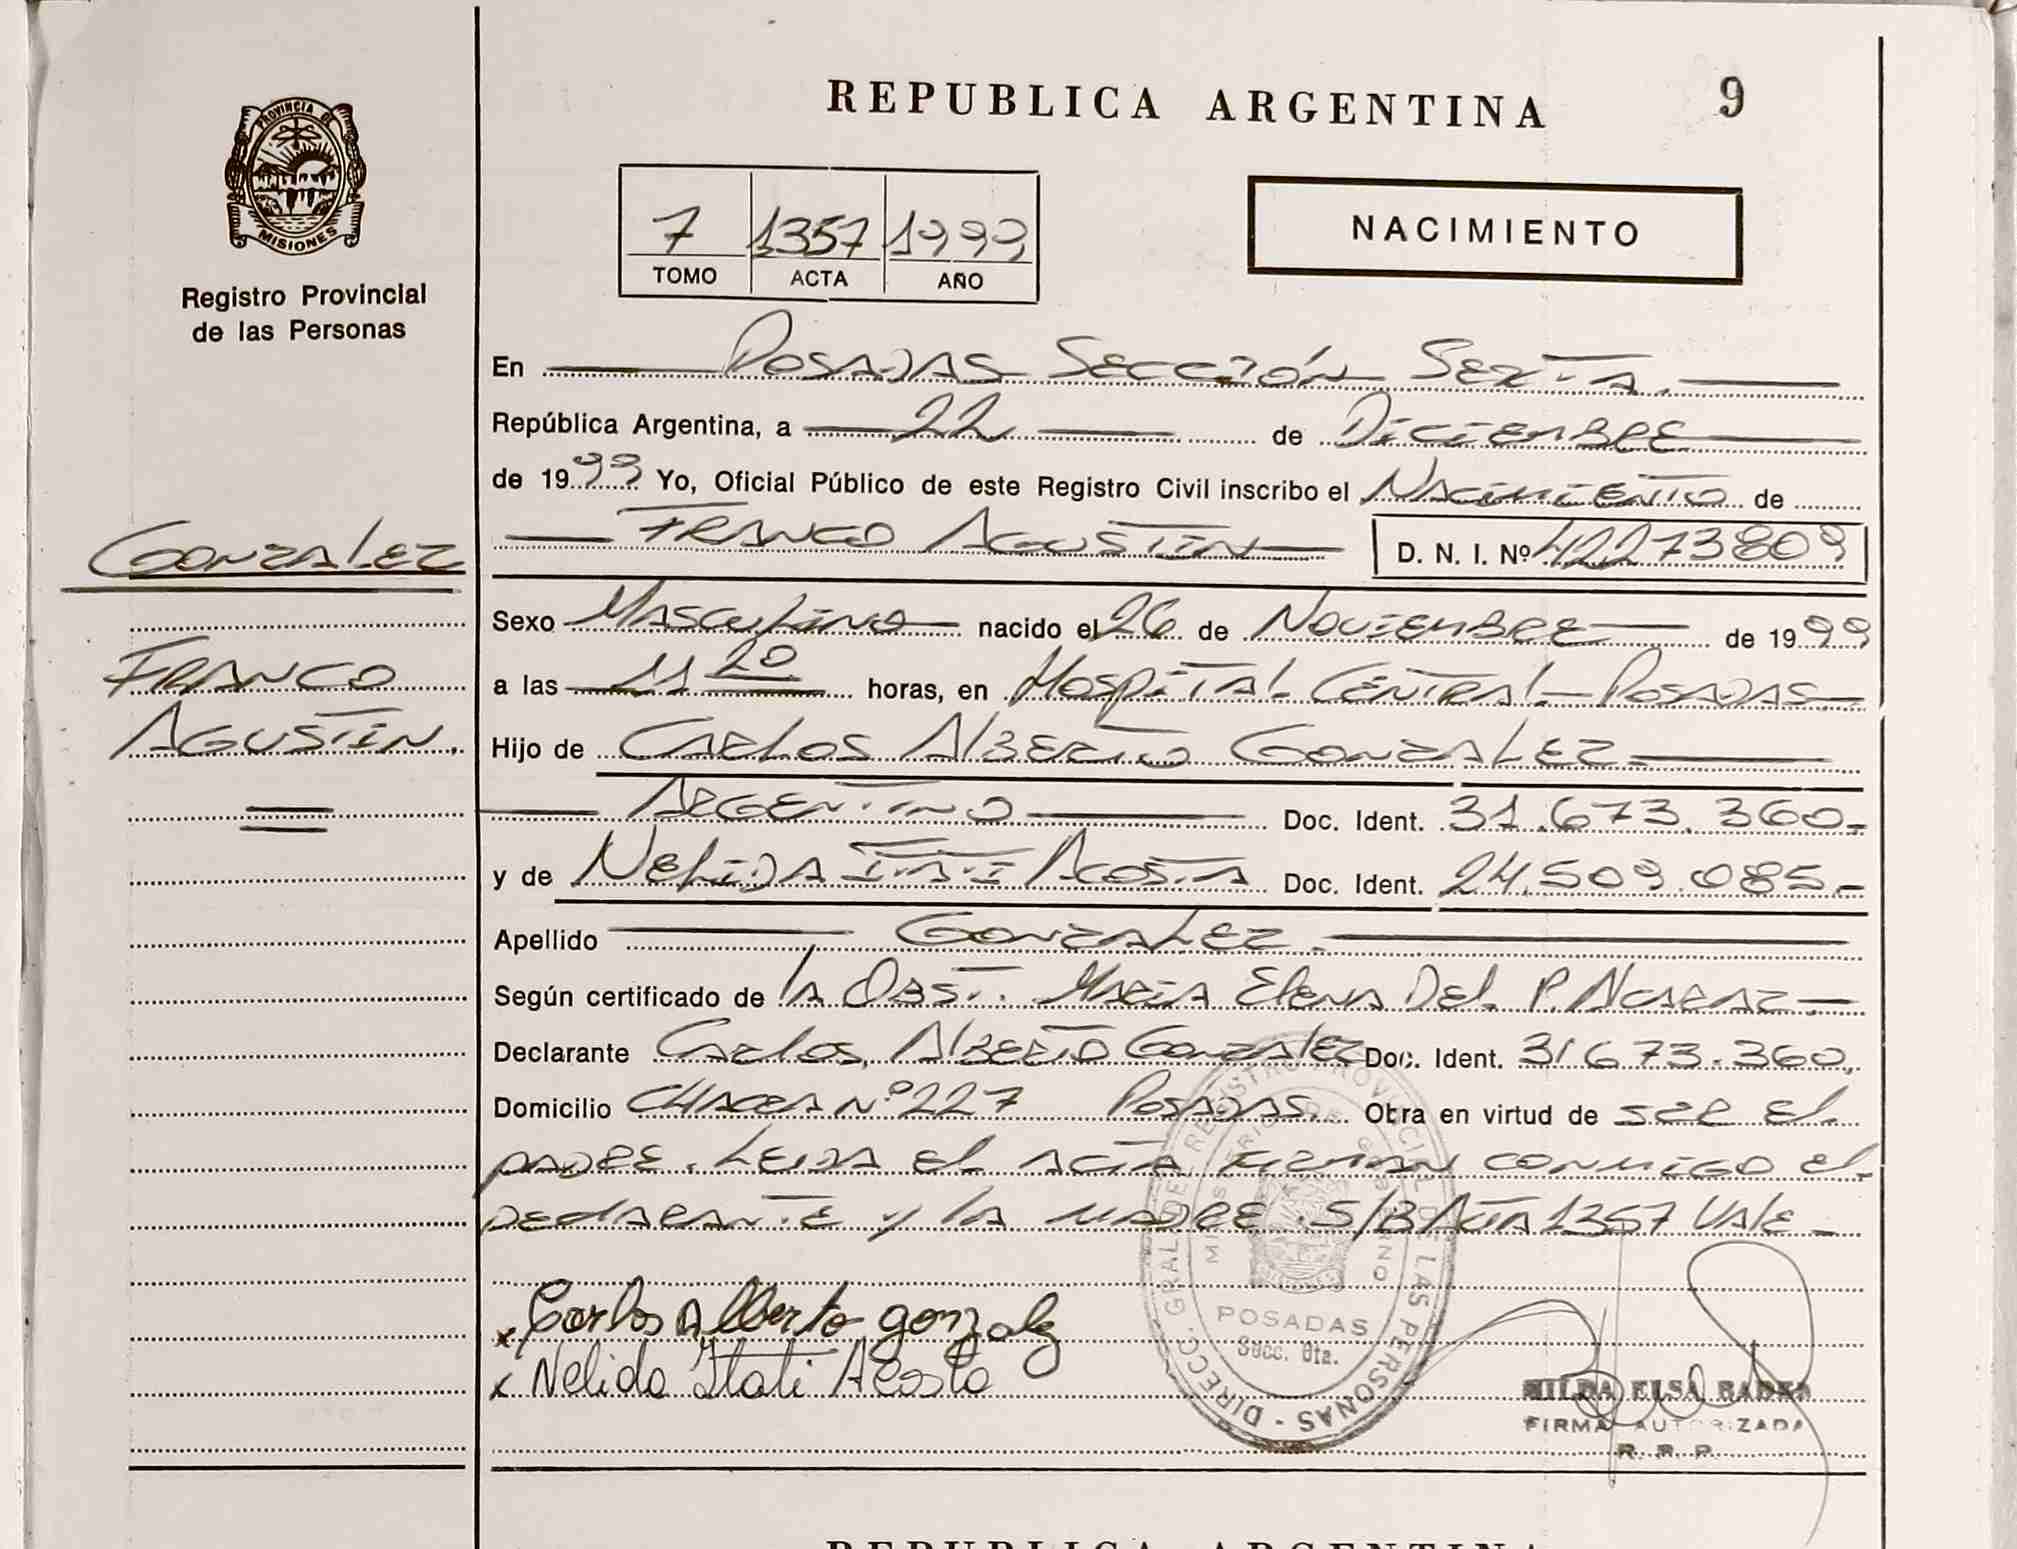 PROVINCIA DE
MISIONES
Registro Provincial
de las Personas
GONZALEZ
FRANCO
AGUSTIN.
REPUBLICA ARGENTINA 9
7 1357 1999
TOMO ACTA AÑO
NACIMIENTO
En POSADAS SECCIÓN SEXTA.
República Argentina, a 22 de DICIEMBRE
de 1999 Yo, Oficial Público de este Registro Civil inscribo el NACIMIENTO de
FRANCO AGUSTIN D. N. I. Nº 42273809
Sexo MASCULINO nacido el 26 de NOVIEMBRE de 1999
a las 11 20 horas, en HOSPITAL CENTRAL POSADAS
Hijo de CARLOS ALBERTO GONZALEZ
ARGENTINO Doc. Ident. 31.673.360.
y de NELIDA ITATI ACOSTA Doc. Ident. 24.509.085.
Apellido GONZALEZ.
Según certificado de la OBST. MARIA ELENA DEL P. ALCARAZ
Declarante CARLOS ALBERTO GONZALEZ Doc. Ident. 31.673.360.
Domicilio CHACRA Nº 227 POSADAS. Obra en virtud de SER EL
PADRE. LEIDA EL ACTA FIRMAN CONMIGO EL
DECLARANTE y LA MADRE. S/B ACTA 1357 VALE
x Carlos Alberto gonzalez
x Nelida Itati Acosta
DIRECC. GRAL. DE REGISTRO PROVINCIAL DE LAS PERSONAS
MINISTERIO DE GOBIERNO
POSADAS
Secc. 6ta.
HILDA ELSA
FIRMA AUTORIZADA
R. P. P.
REPUBLICA ARGENTINA